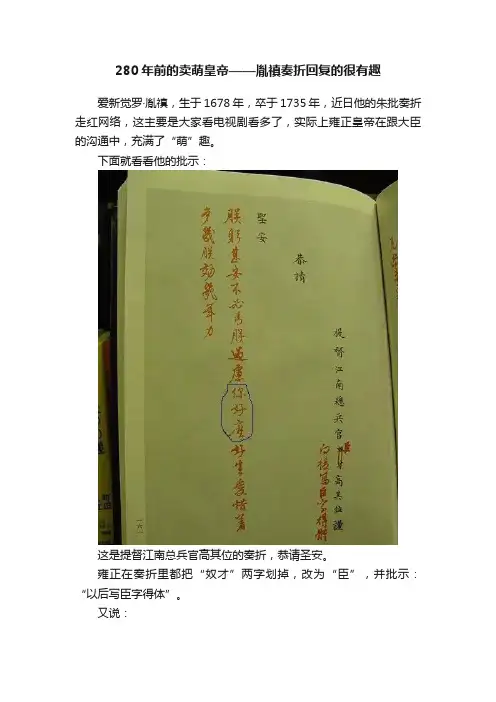 280年前的卖萌皇帝——胤禛奏折回复的很有趣
爱新觉罗·胤禛，生于1678年，卒于1735年，近日他的朱批奏折
走红网络，这主要是大家看电视剧看多了，实际上雍正皇帝在跟大臣
的沟通中，充满了“萌”趣。
下面就看看他的批示：
提督江南總兵官臣高其位謹
向後寫臣字得體
恭請
聖安
朕躬甚安不必為朕過慮你好麽好生愛惜著
多朕効幾年力
这是提督江南总兵官高其位的奏折，恭请圣安。
雍正在奏折里都把“奴才”两字划掉，改为“臣”，并批示：
“以后写臣字得体”。
又说：